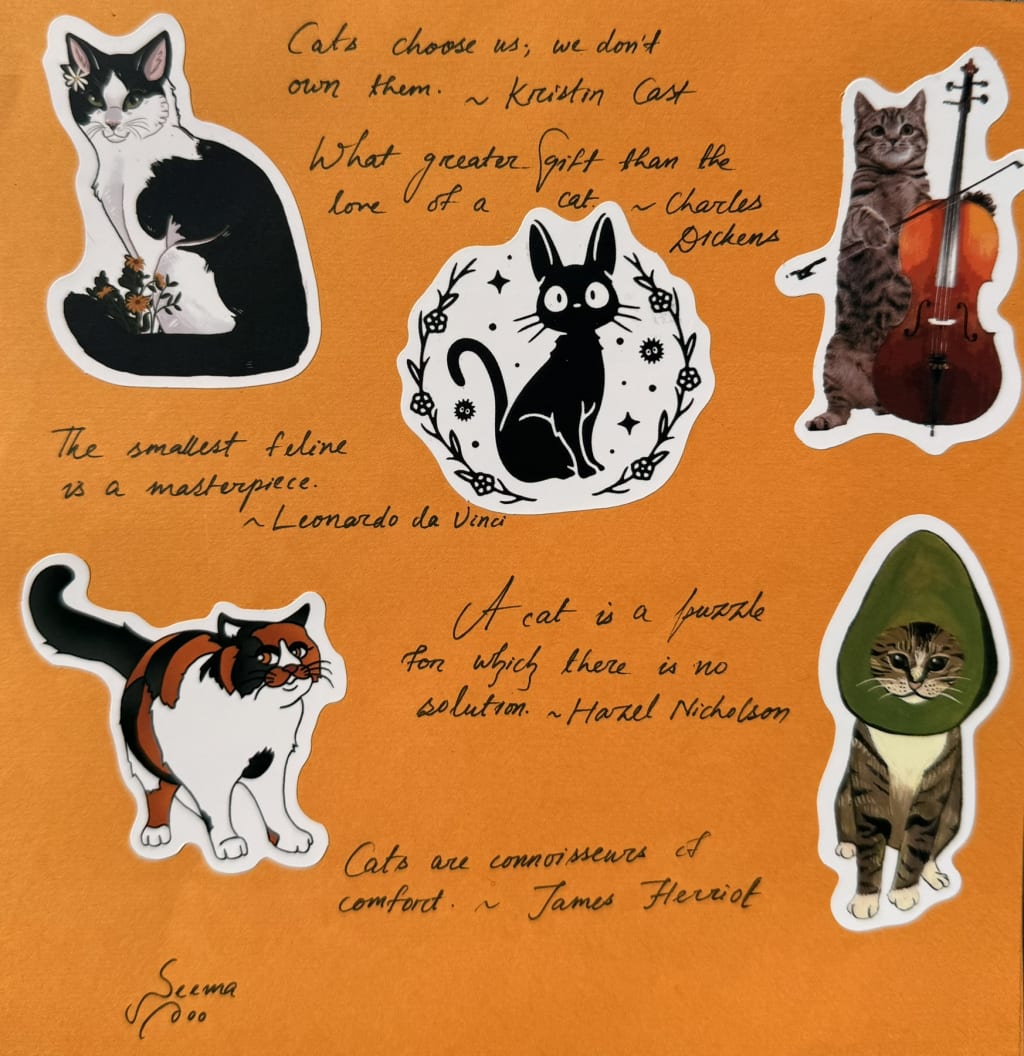 Cats choose us; we don't
own them. ~ Kristin Cast
What greater gift than the
love of a cat. ~ Charles
Dickens
The smallest feline
is a masterpiece.
~ Leonardo da Vinci
A cat is a puzzle
for which there is no
solution. ~ Hazel Nicholson
Cats are connoisseurs of
comfort. ~ James Herriot
Seema